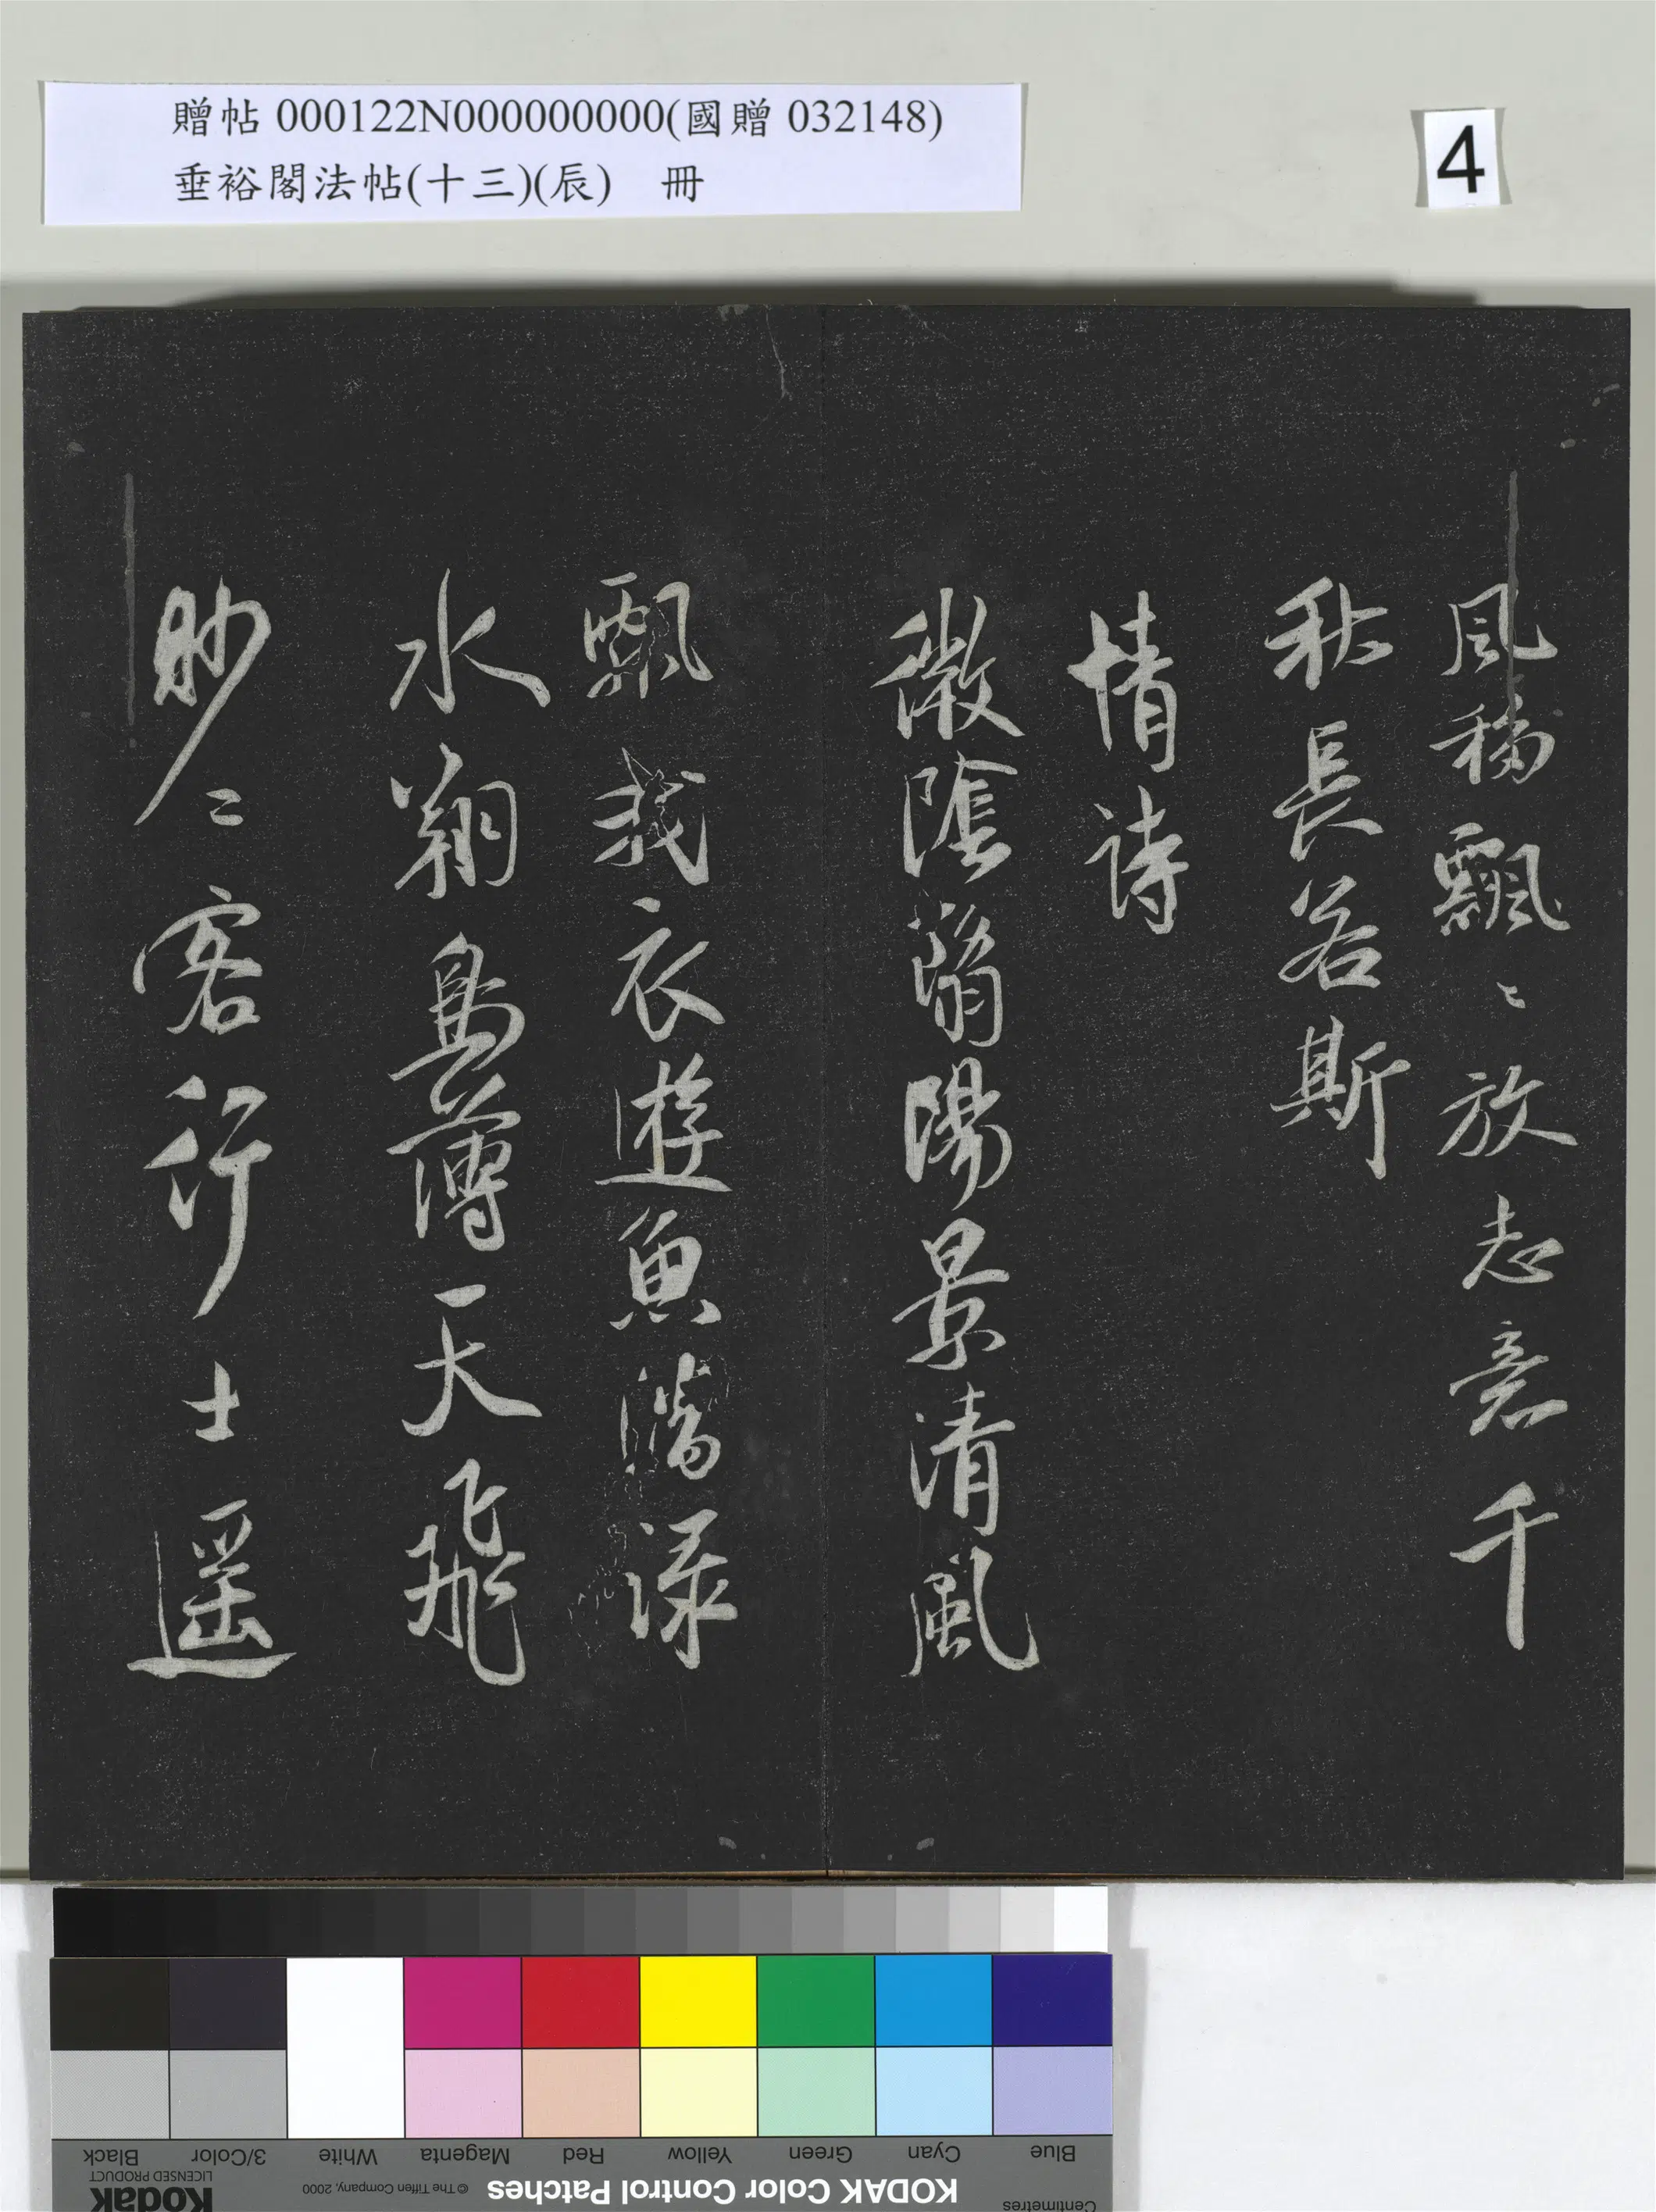 贈帖 000122N000000000(國贈 032148)
垂裕閣法帖(十三)(辰) 冊
4
風移飄〻放志意千
秋長若斯
情詩
微陰翳陽景清風
飄我衣遊魚潛淥
水翔鳥薄天飛
眇〻客行士遥
Black
3/Color
White
Magenta
Red
Yellow
Green
Cyan
Blue
Kodak
LICENSED PRODUCT
© The Tiffen Company, 2000
KODAK Color Control Patches
Centimetres